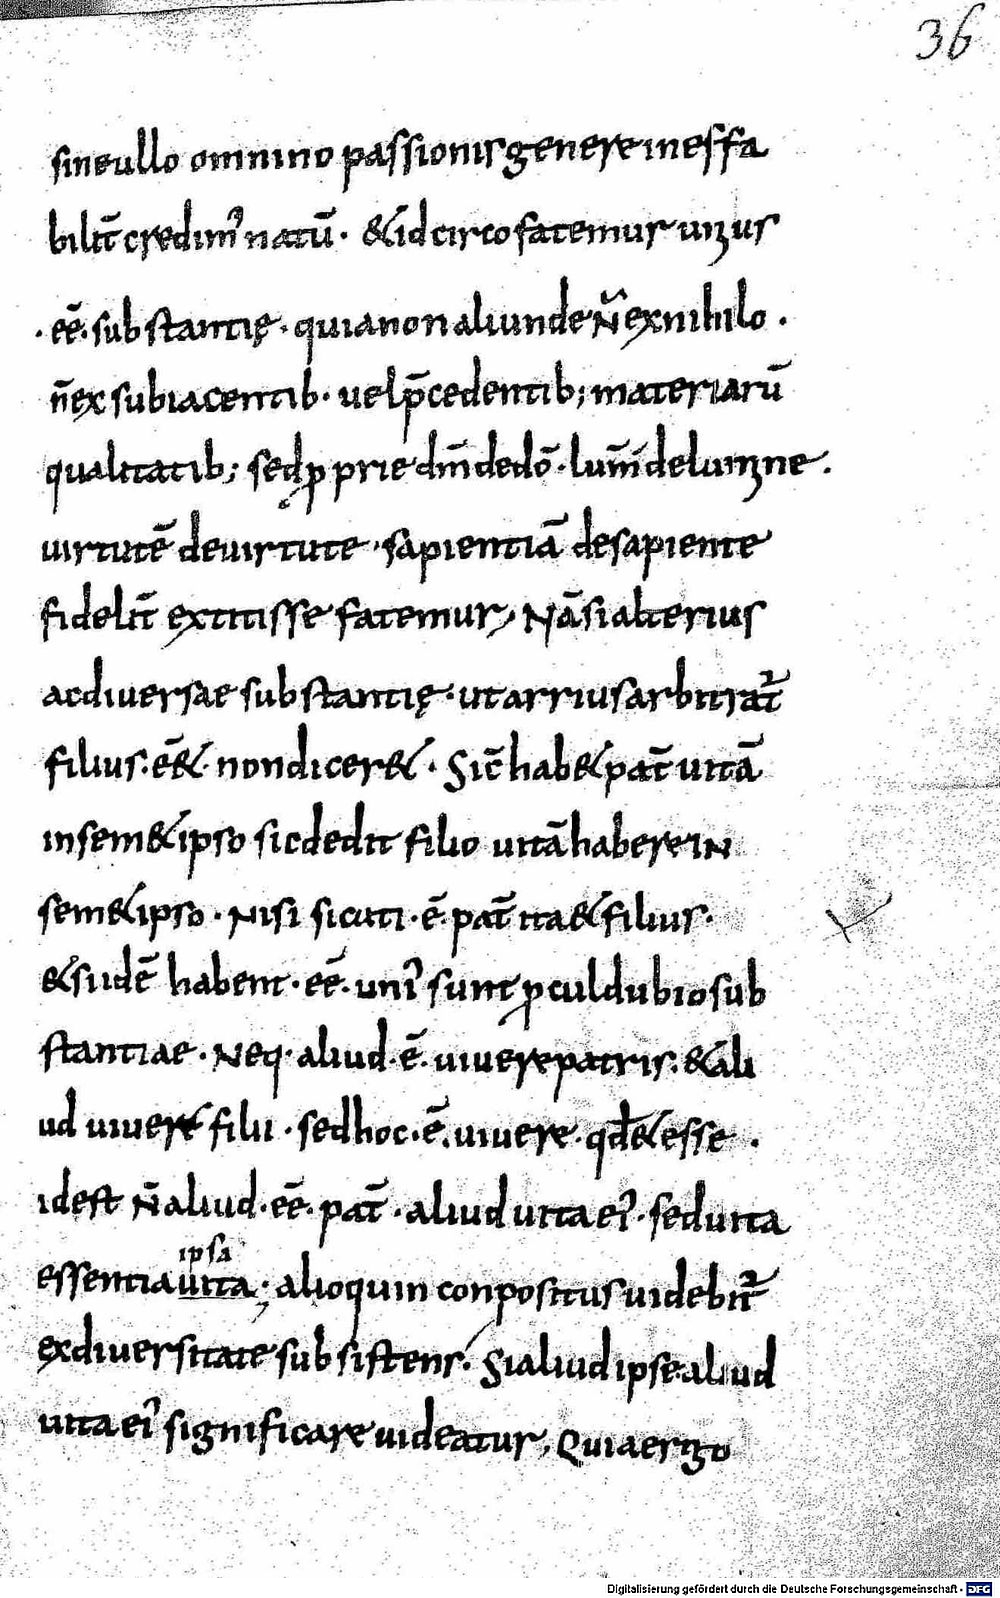 36
sine ullo omnino passionis genere ineffa
bilit̄ credim᾽ natū· & idcirco fatemur unius
· eē· substantię· quia non aliunde N̄ ex nihilo ·
n̄ ex subiacentib· uel p̄cedentib; materiarū
qualitatib; sed ꝓprie dm̄ de dō· lum̄ de lumine ·
uirtutē de uirtute · sapientiā de sapiente
fidelit̄ extitisse fatemur, Nā si alterius
ac diuersae substantię· ut arrius arbitrat᷑
filius· eē&· non dicer&· Sic̄ hab& pat̄ uitā
in sem&ipso sic dedit filio uitā habere IN
sem&ipso · Nisi sicuti· ē· pat̄ ita & filius·
& suidē habent· eē· uni᾽ sunt ꝓculdubio sub
stantiae · Neq· aliud· ē· uiuere patris· & ali
ud uiuere filii · sed hoc· ē· uiuere· qđ & esse ·
id est N̄ aliud· eē· pat̄ · aliud uita ei᾽· sed uita
ipsa
essentia uita ; alioquin conpositus uidebit᷑
ex diuersitate subsistens· Si aliud ipse aliud
uita ei᾽ significare uideatur, Quia ergo
Digitalisierung gefördert durch die Deutsche Forschungsgemeinschaft · DFG